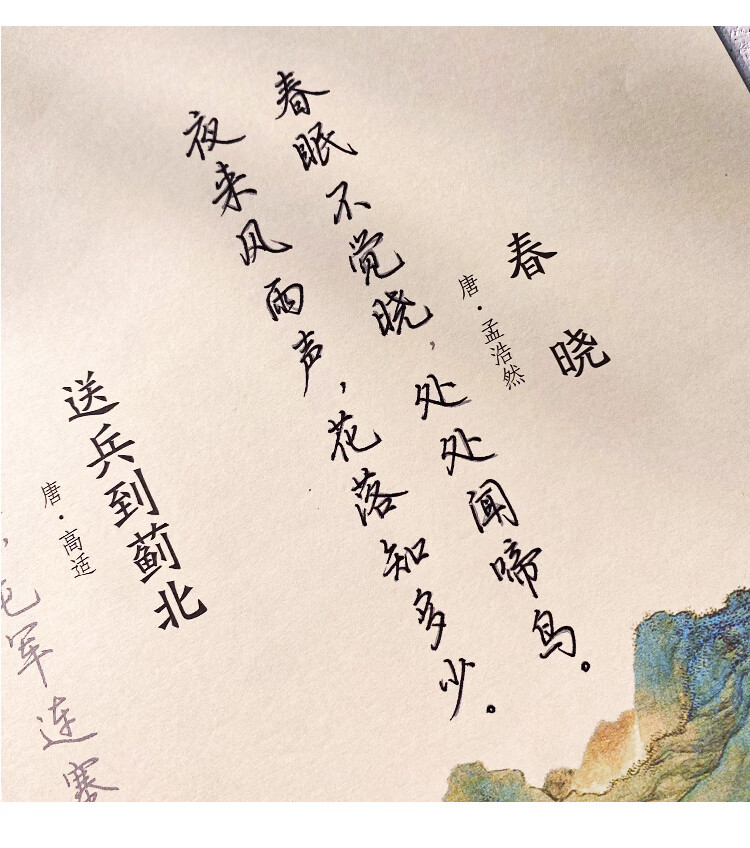 春晓
唐·孟浩然
春眠不觉晓，处处闻啼鸟。
夜来风雨声，花落知多少。
送兵到蓟北
唐·高适
屯军连塞